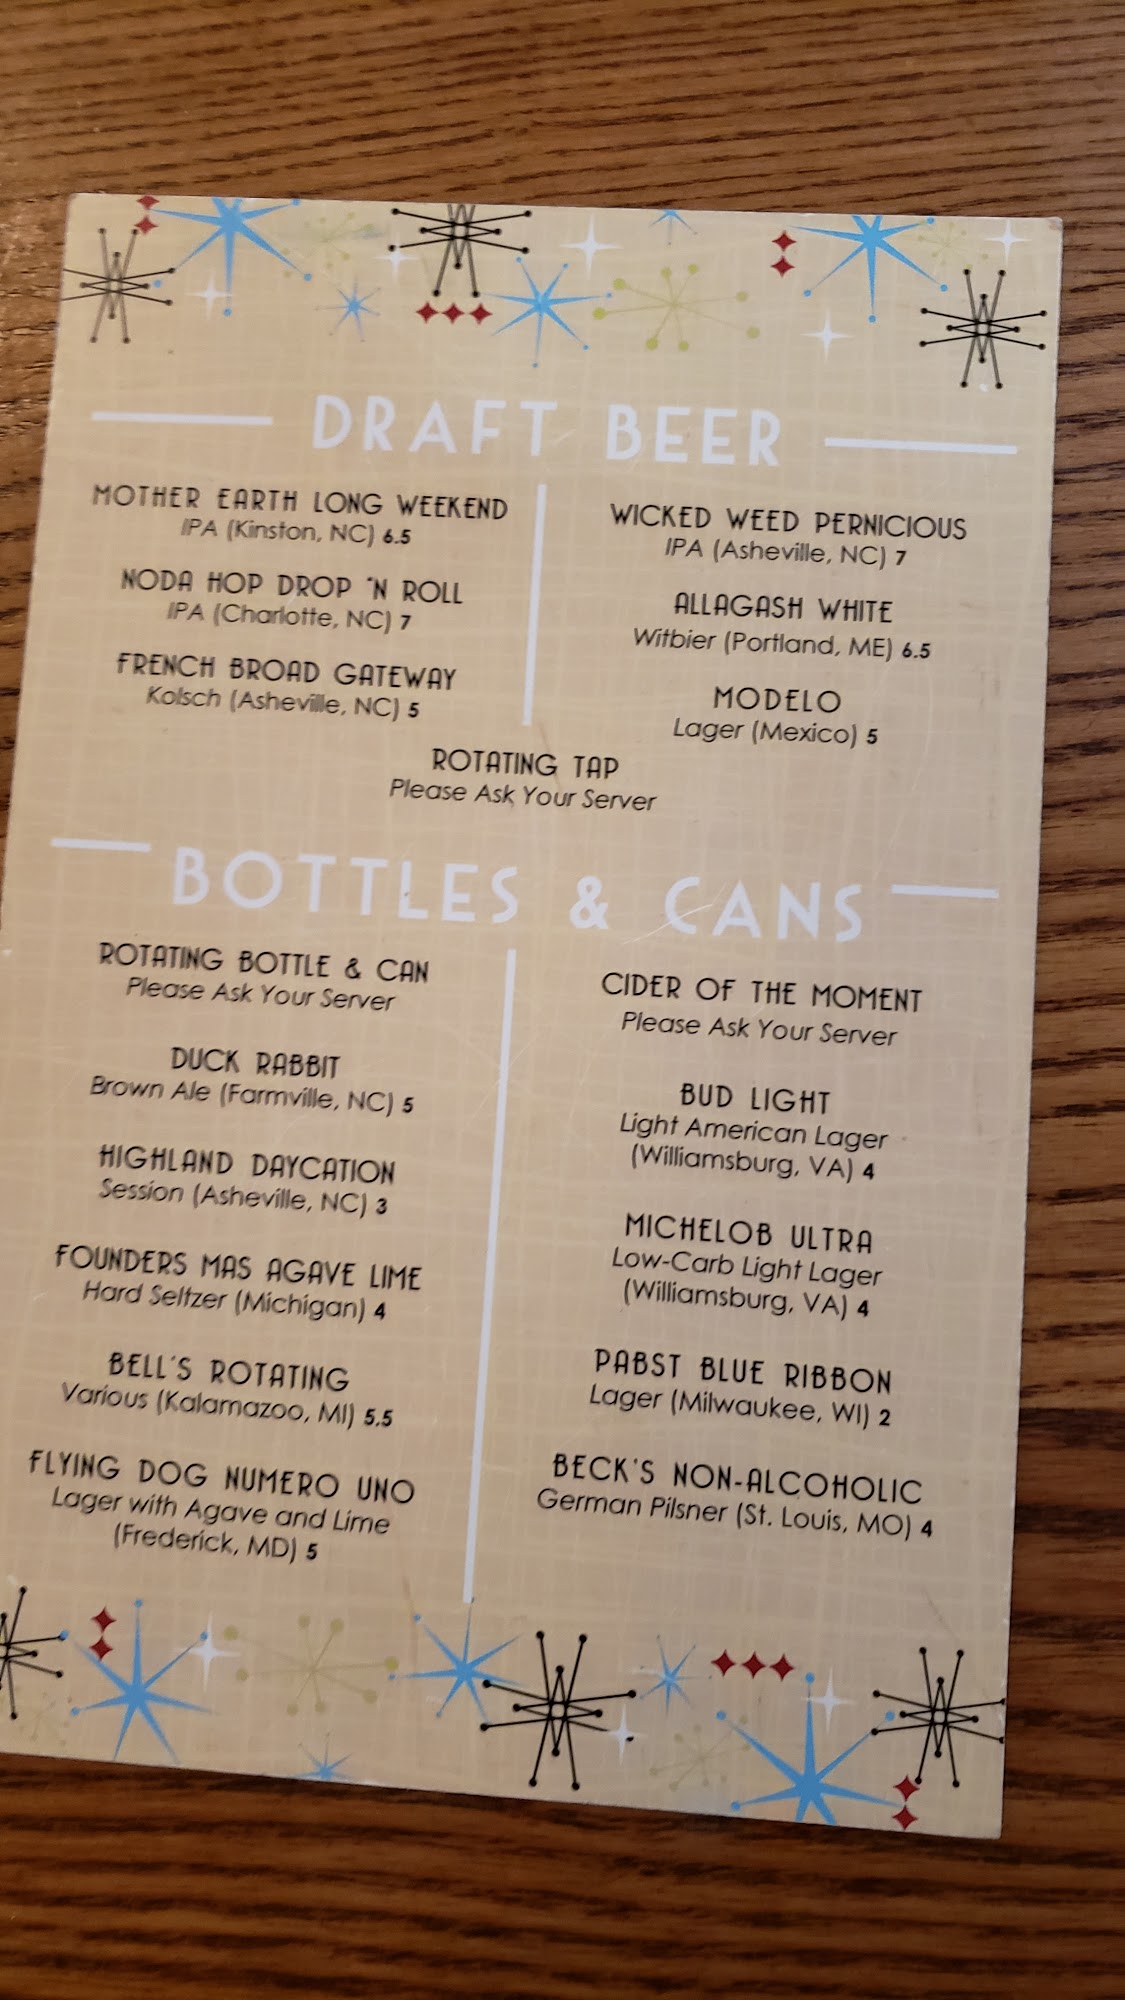 DRAFT BEER
MOTHER EARTH LONG WEEKEND
IPA (Kinston, NC) 6.5
NODA HOP DROP 'N ROLL
IPA (Charlotte, NC) 7
FRENCH BROAD GATEWAY
Kolsch (Asheville, NC) 5
WICKED WEED PERNICIOUS
IPA (Asheville, NC) 7
ALLAGASH WHITE
Witbier (Portland, ME) 6.5
MODELO
Lager (Mexico) 5
ROTATING TAP
Please Ask Your Server
BOTTLES & CANS
ROTATING BOTTLE & CAN
Please Ask Your Server
DUCK RABBIT
Brown Ale (Farmville, NC) 5
HIGHLAND DAYCATION
Session (Asheville, NC) 3
FOUNDERS MAS AGAVE LIME
Hard Seltzer (Michigan) 4
BELL'S ROTATING
Various (Kalamazoo, MI) 5.5
FLYING DOG NUMERO UNO
Lager with Agave and Lime
(Frederick, MD) 5
CIDER OF THE MOMENT
Please Ask Your Server
BUD LIGHT
Light American Lager
(Williamsburg, VA) 4
MICHELOB ULTRA
Low-Carb Light Lager
(Williamsburg, VA) 4
PABST BLUE RIBBON
Lager (Milwaukee, WI) 2
BECK'S NON-ALCOHOLIC
German Pilsner (St. Louis, MO) 4